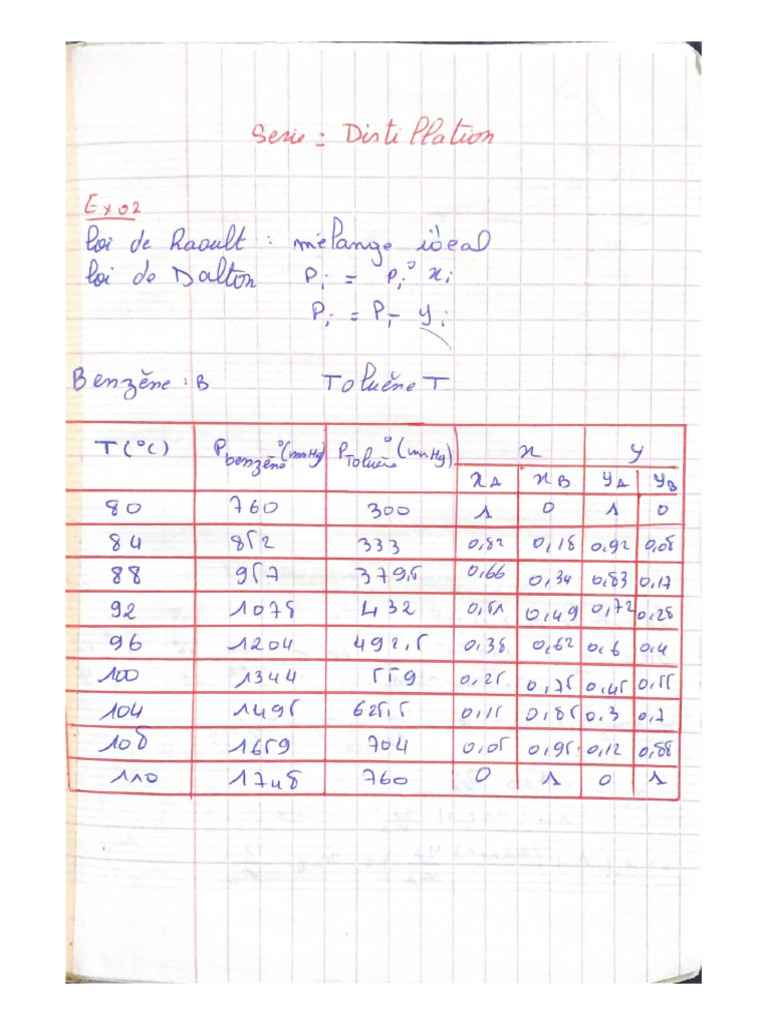 Serie : Distillation
Exo2
loi de Raoult : mélange idéal
loi de Dalton Pi = Pi° xi
Pi = PT yi
Benzène : B Toluène T
T(°C) P benzène°(mmHg) P Toluène°(mmHg) x y
xA xB yA yB
80 760 300 1 0 1 0
84 852 333 0,82 0,18 0,92 0,08
88 957 379,5 0,66 0,34 0,83 0,17
92 1078 432 0,51 0,49 0,72 0,28
96 1204 492,5 0,38 0,62 0,6 0,4
100 1344 559 0,25 0,75 0,45 0,55
104 1495 625,5 0,15 0,85 0,3 0,7
108 1659 704 0,05 0,95 0,12 0,88
110 1748 760 0 1 0 1